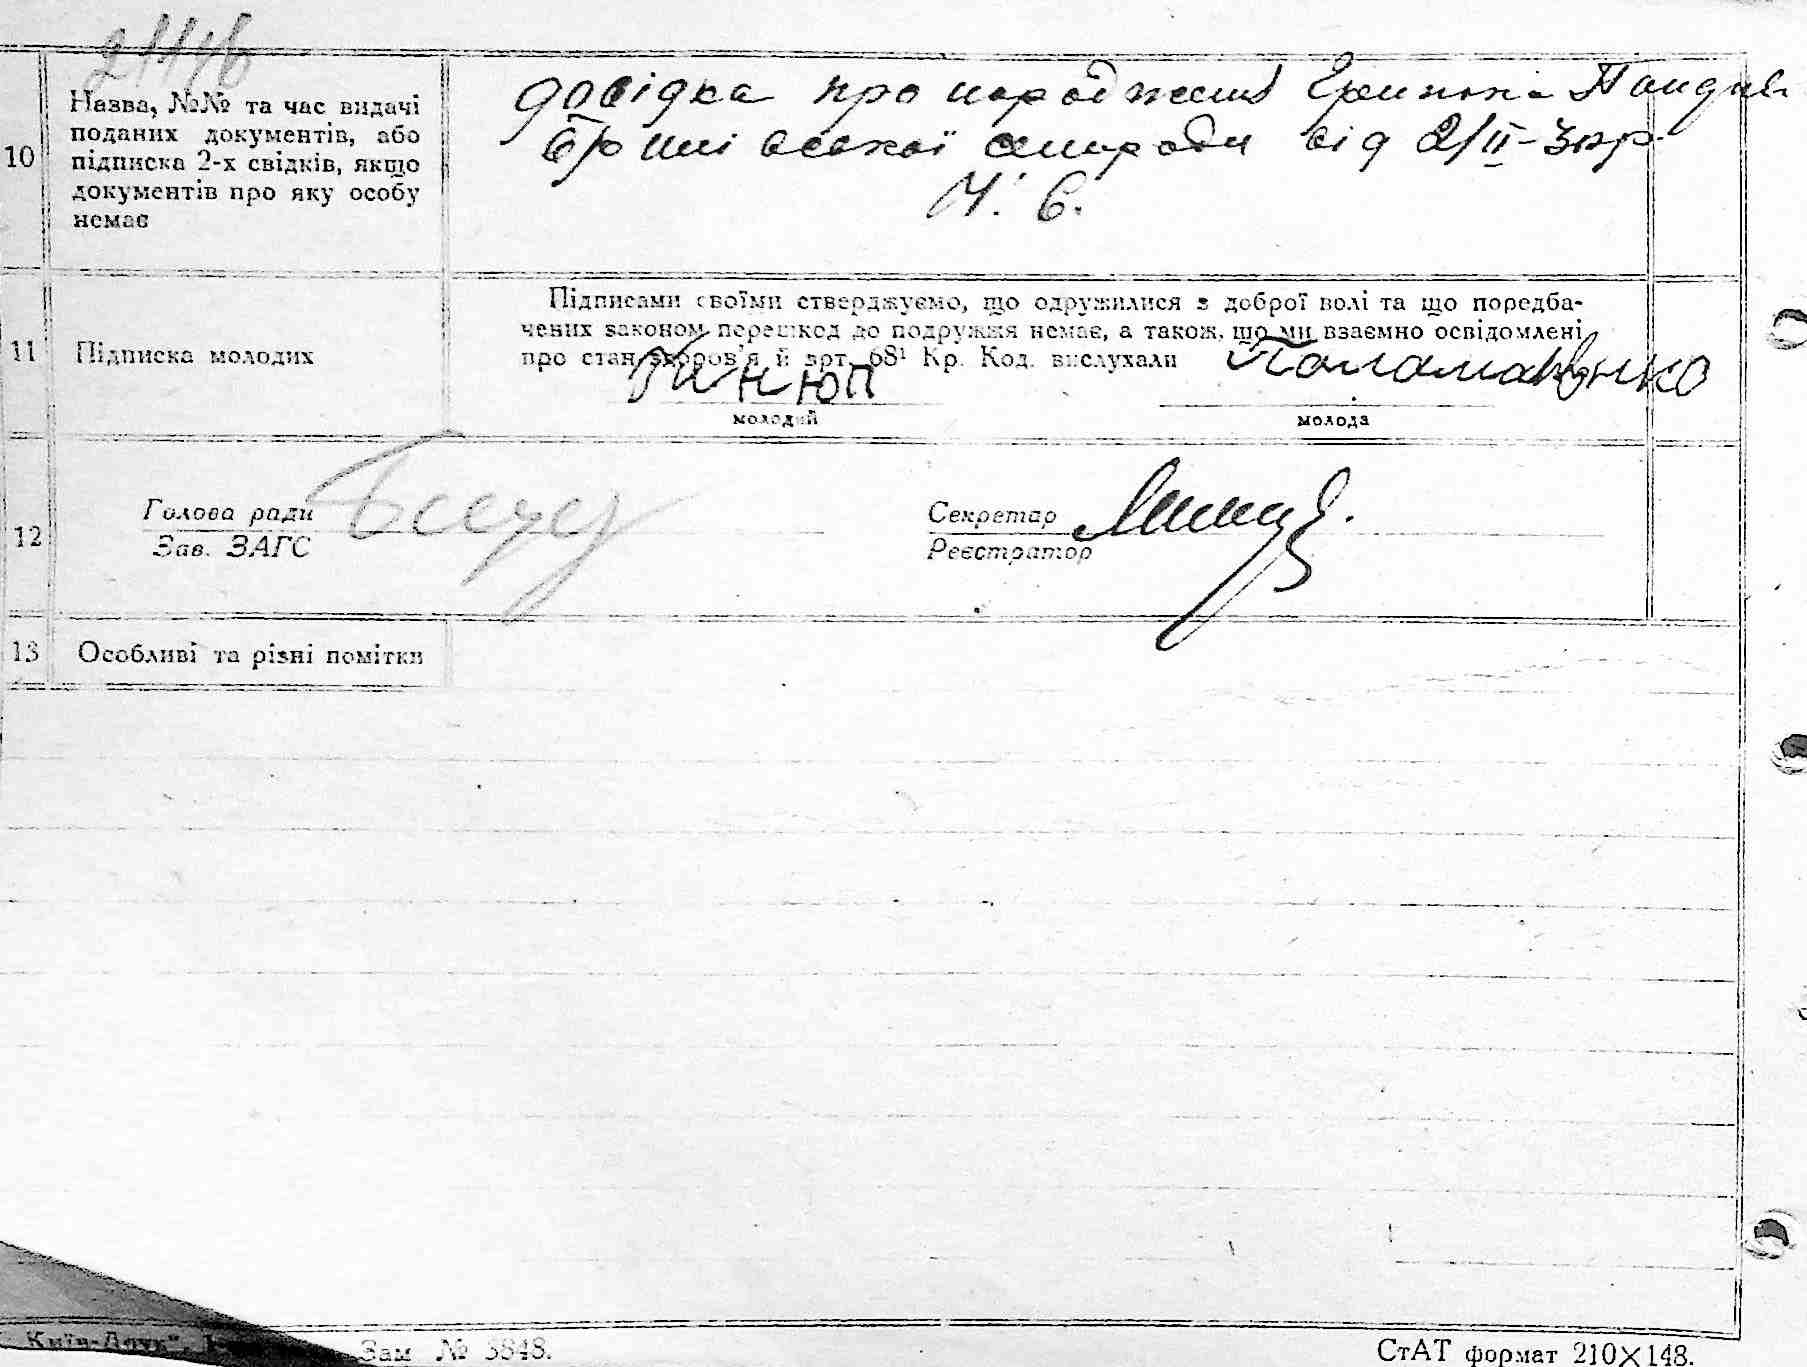 10
Назва, №№ та час видачі
поданих документів, або
підписка 2-х свідків, якщо
документів про яку особу
немає
довідка про народження
сільради від 2/II-
Ч. 6.
11
Підписка молодих
Підписами своїми стверджуємо, що одружилися з доброї волі та що передба-
чених законом перешкод до подружжя немає, а також, що ми взаємно освідомлені
про стан здоров'я й арт. 68¹ Кр. Код. вислухали
Паламаренко
молодий
молода
12
Голова ради
Зав. ЗАГС
Секретар
Реєстратор
13
Особливі та різні помітки
Київ-Друк",
Зам № 5848.
СтАТ формат 210×148.